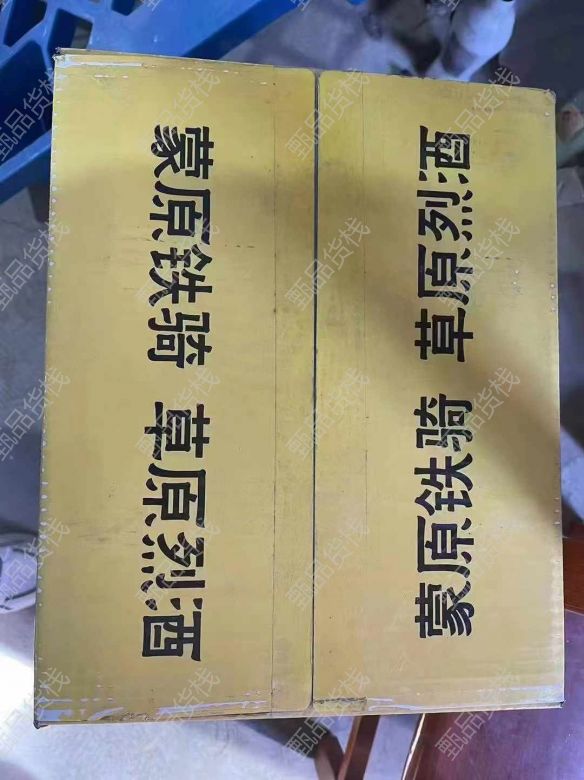 蒙原铁骑 草原烈酒
蒙原铁骑 草原列酒
甄品货栈